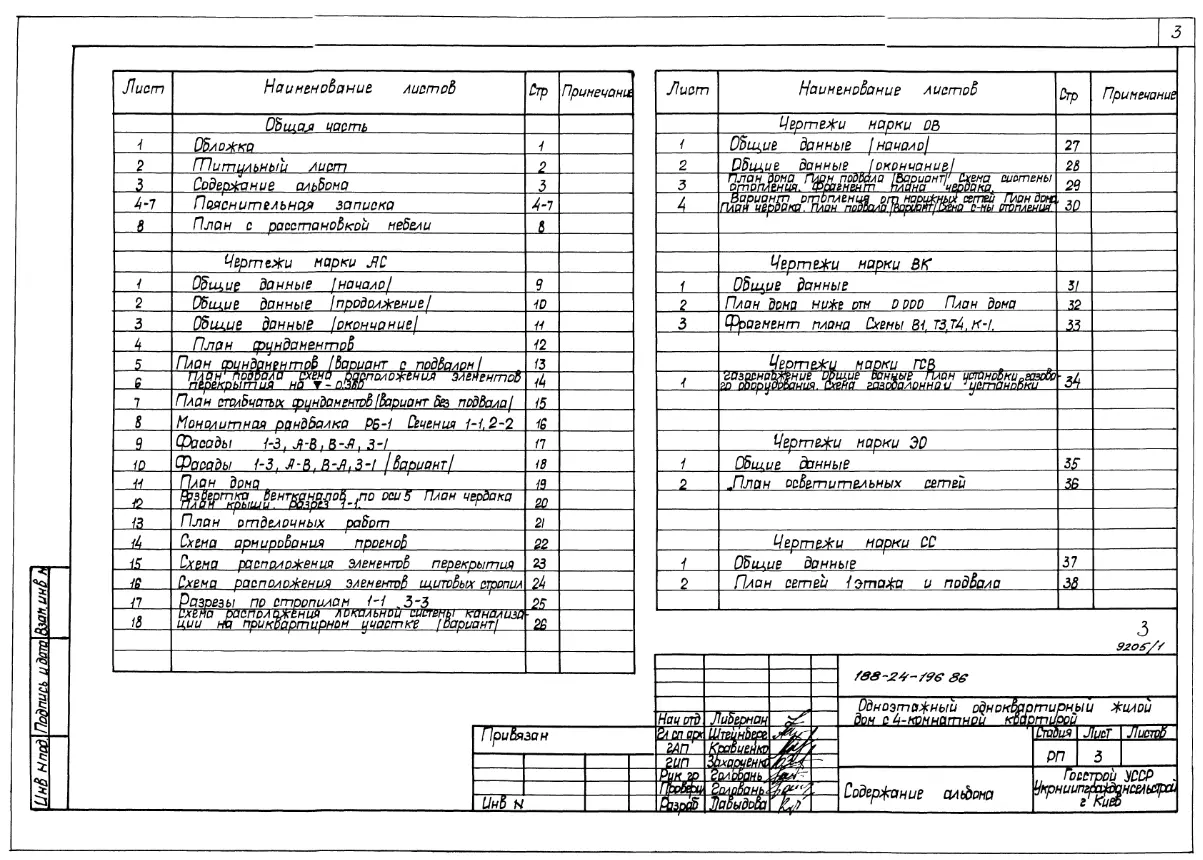 3
Лист Наименование листов Стр Примечание
Общая часть
1 Обложка 1
2 Титульный лист 2
3 Содержание альбома 3
4-7 Пояснительная записка 4-7
8 План с расстановкой мебели 8
Чертежи марки АС
1 Общие данные /начало/ 9
2 Общие данные /продолжение/ 10
3 Общие данные /окончание/ 11
4 План фундаментов 12
5 План фундаментов /вариант с подвалом/ 13
План подвала схема расположения элементов
6 перекрытия на ▼-0,380 14
7 План столбчатых фундаментов /вариант без подвала/ 15
8 Монолитная рандбалка РБ-1 Сечения 1-1, 2-2 16
9 Фасады 1-3, А-В, В-А, 3-1 17
10 Фасады 1-3, А-В, В-А, 3-1 /вариант/ 18
11 План дома 19
Развертка вентканалов по оси 5 План чердака
12 План крыши. Разрез 1-1. 20
13 План отделочных работ 21
14 Схема армирования проемов 22
15 Схема расположения элементов перекрытия 23
16 Схема расположения элементов щитовых стропил 24
17 Разрезы по стропилам 1-1 3-3 25
Схема расположения локальной системы канализа-
18 ции на приквартирном участке /вариант/ 26
Лист Наименование листов Стр Примечание
Чертежи марки ОВ
1 Общие данные /начало/ 27
2 Общие данные /окончание/ 28
План дома План подвала /Вариант/ Схема системы
3 отопления. Фрагмент плана чердака. 29
Вариант отопления от наружных сетей План дома
4 План чердака. План подвала /вариант/ Схема с-мы отопления 30
Чертежи марки ВК
1 Общие данные 31
2 План дома ниже отм 0 000 План дома 32
3 Фрагмент плана Схемы В1, Т3, Т4, К-1. 33
Чертежи марки ГСВ
газоснабжение Общие данные План установки газово-
1 го оборудования. Схена газобалонной установки 34
Чертежи марки ЭО
1 Общие данные 35
2 План осветительных сетей 36
Чертежи марки СС
1 Общие данные 37
2 План сетей 1 этажа и подвала 38
3
9205/1
188-24-196 86
Одноэтажный одноквартирный жилой
дом с 4-комнатной квартирой
Стадия Лист Листов
РП 3
Содержание альбома
Госстрой УССР
Укрниипграждансельстрой
г Киев
Нач отд Либерман
Гл сп арх Штейнберг
ГАП Кравченко
ГИП Захарченко
Рук гр Головань
Провери Головань
Разраб Давыдова
Привязан
Инв N
Взам. инв N
Подпись и дата
Инв N под